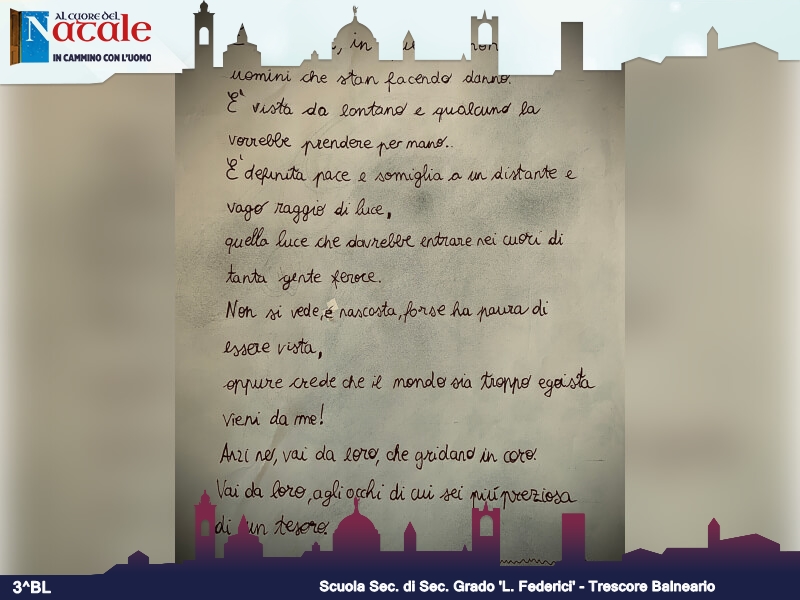 AL CUORE DEL
Natale
IN CAMMINO CON L'UOMO
, in
uomini che stan facendo danno.
E' vista da lontano e qualcuno la
vorrebbe prendere per mano..
E' definita pace e somiglia a un distante e
vago raggio di luce,
quella luce che dovrebbe entrare nei cuori di
tanta gente feroce.
Non si vede, é nascosta, forse ha paura di
essere vista,
oppure crede che il mondo sia troppo egoista
vieni da me!
Anzi no, vai da loro, che gridano in coro.
Vai da loro, agli occhi di cui sei più preziosa
di un tesoro.
3^BL
Scuola Sec. di Sec. Grado 'L. Federici' - Trescore Balneario